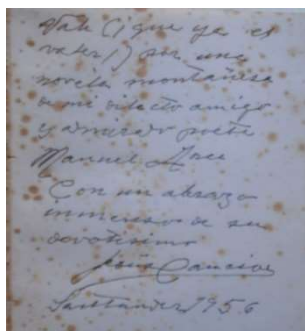 Vale (¡que ya es
valer!) por una
novela montañesa
de mi dilecto amigo
y admirado poeta
Manuel Arce
Con un abrazo
inmenso de su
devotísimo
Jesús Cancio
Santander 1956